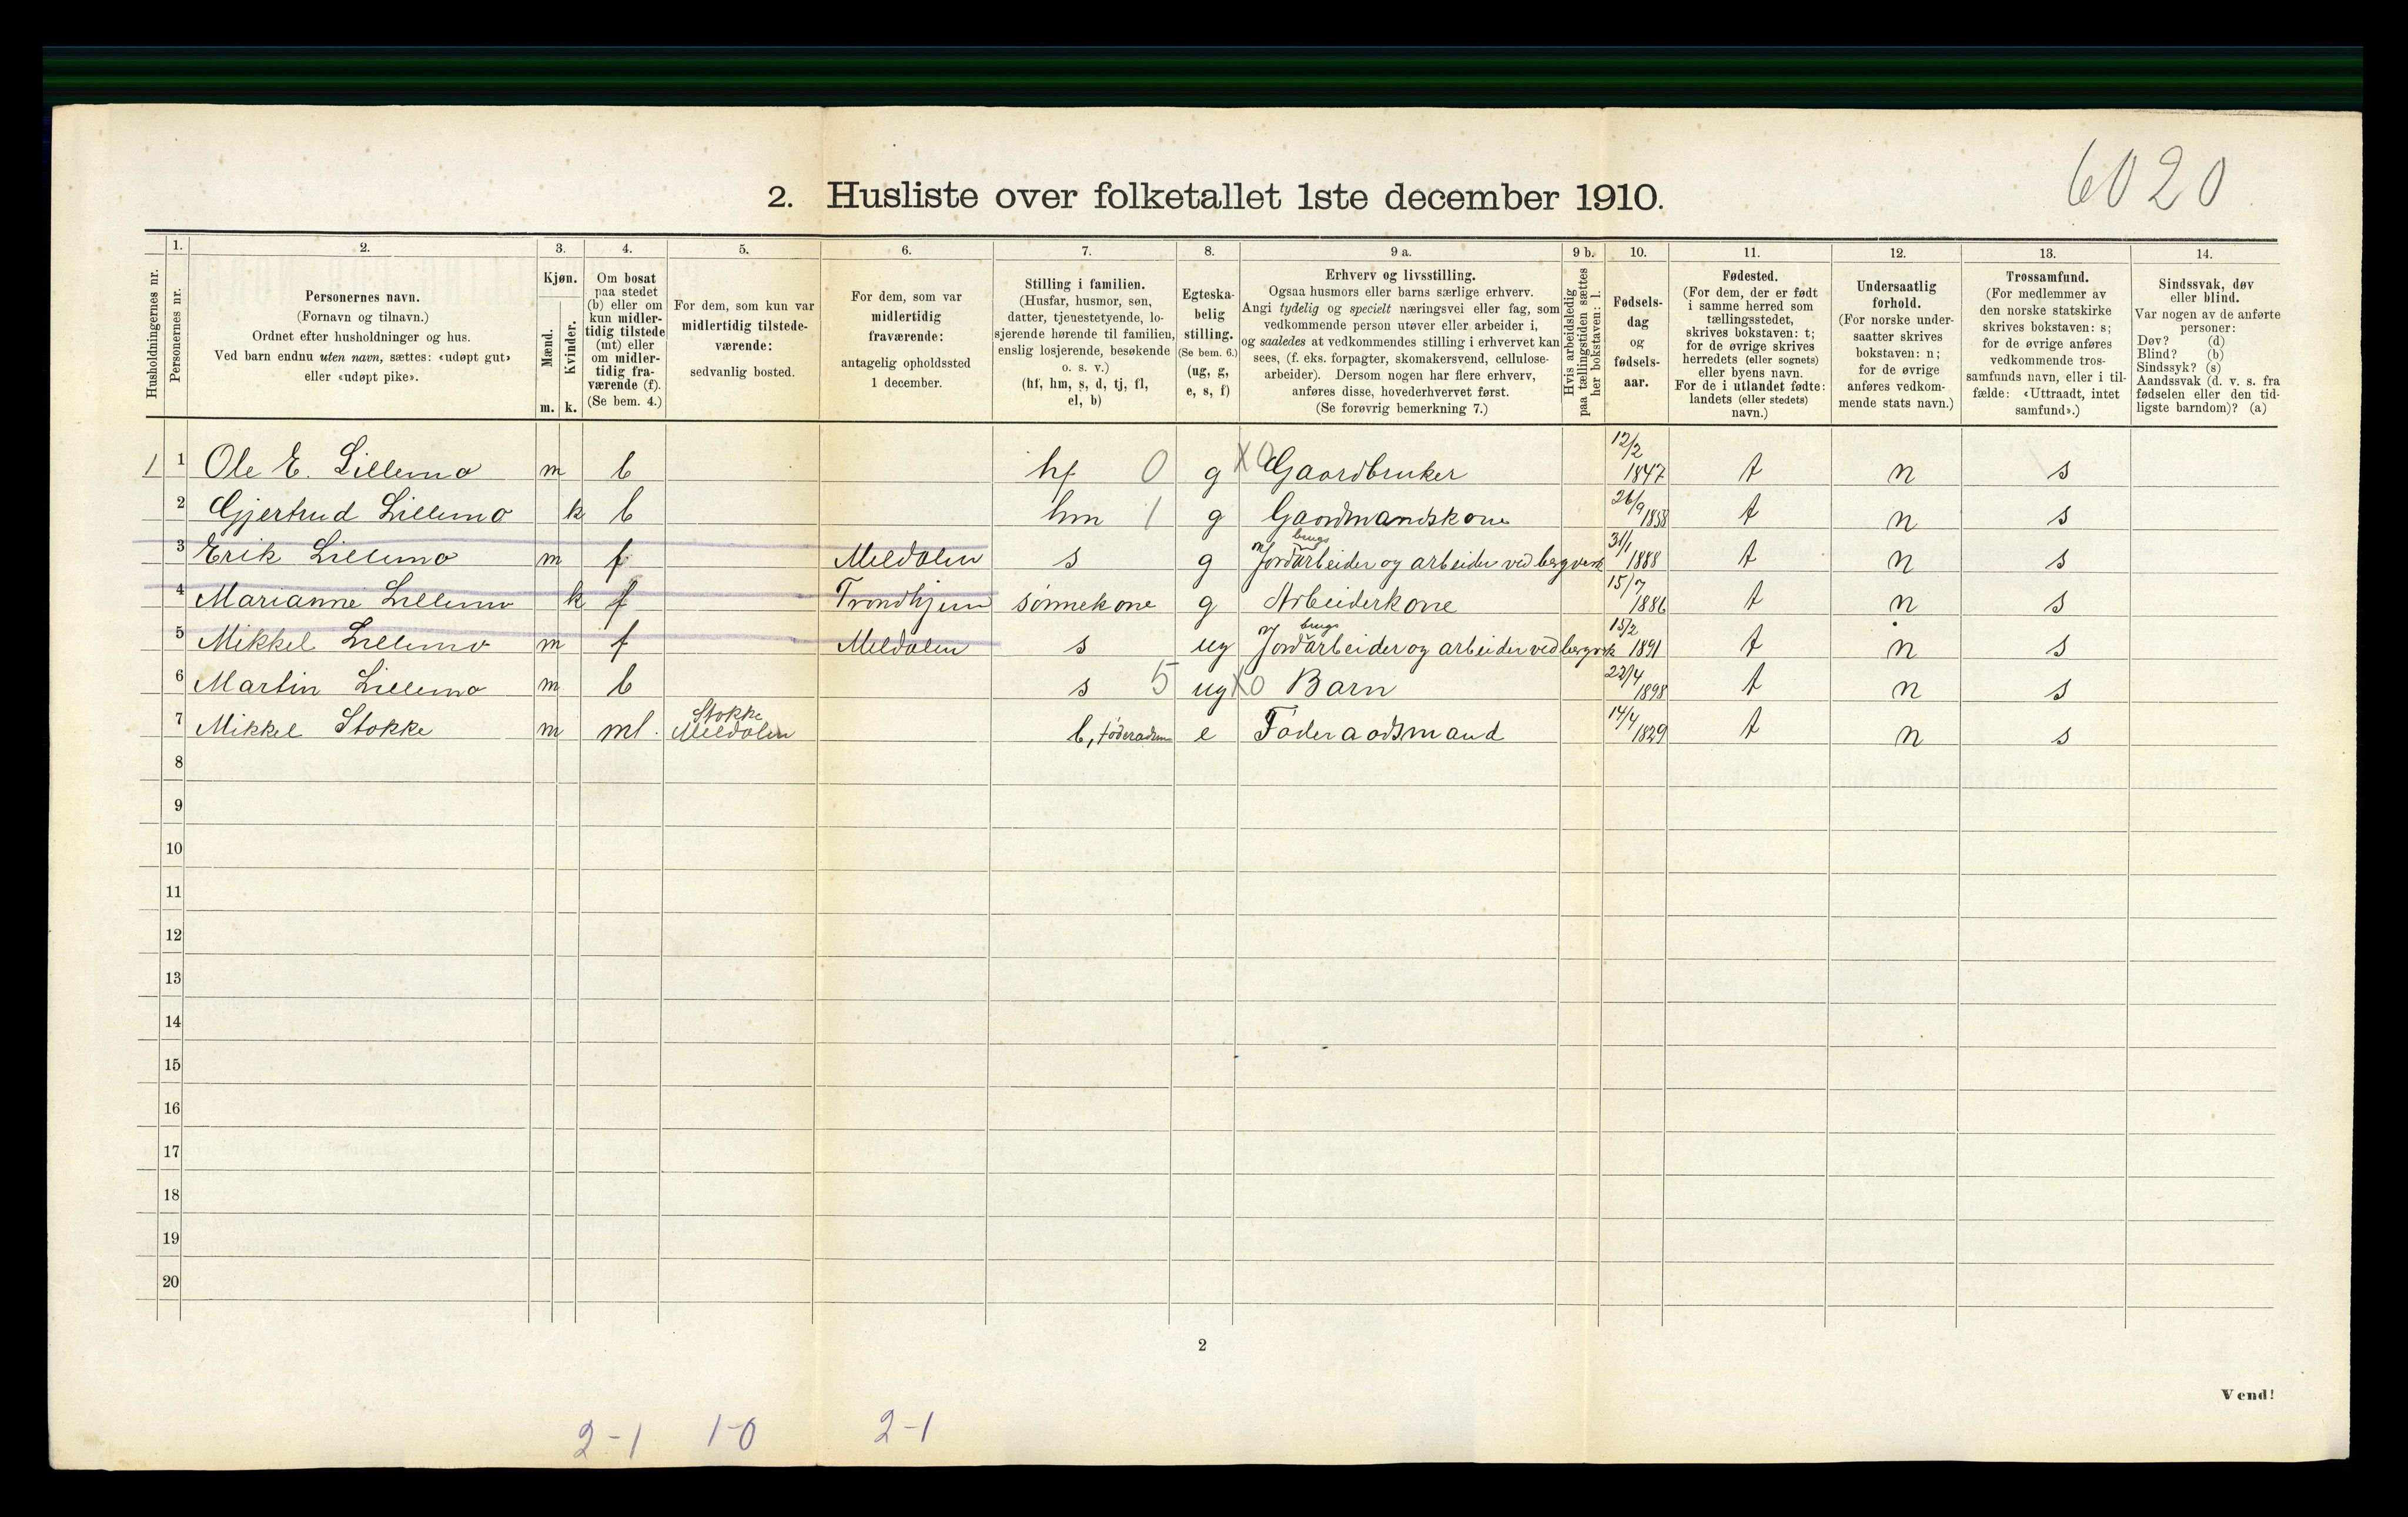 6020
2. Husliste over folketallet 1ste december 1910.
Husholdningernes nr.
1.
Personernes nr.
2.
Personernes navn.
(Fornavn og tilnavn.)
Ordnet efter husholdninger og hus.
Ved barn endnu uten navn, sættes: «udøpt gut»
eller «udøpt pike».
3.
Kjøn.
Mænd.
Kvinder.
m. k.
4.
Om bosat
paa stedet
(b) eller om
kun midler-
tidig tilstede
(mt) eller
om midler-
tidig fra-
værende (f).
(Se bem. 4.)
5.
For dem, som kun var
midlertidig tilstede-
værende:
sedvanlig bosted.
6.
For dem, som var
midlertidig
fraværende:
antagelig opholdssted
1 december.
7.
Stilling i familien.
(Husfar, husmor, søn,
datter, tjenestetyende, lo-
sjerende hørende til familien,
enslig losjerende, besøkende
o. s. v.)
(hf, hm, s, d, tj, fl,
el, b)
8.
Egteska-
belig
stilling.
(Se bem. 6.)
(ug, g,
e, s, f)
9 a.
Erhverv og livsstilling.
Ogsaa husmors eller barns særlige erhverv.
Angi tydelig og specielt næringsvei eller fag, som
vedkommende person utøver eller arbeider i,
og saaledes at vedkommendes stilling i erhvervet kan
sees, (f. eks. forpagter, skomakersvend, cellulose-
arbeider). Dersom nogen har flere erhverv,
anføres disse, hovederhvervet først.
(Se forøvrig bemerkning 7.)
9 b.
Hvis arbeidsledig
paa tællingstiden sættes
her bokstaven: l.
10.
Fødsels-
dag
og
fødsels-
aar.
11.
Fødested.
(For dem, der er født
i samme herred som
tællingsstedet,
skrives bokstaven: t;
for de øvrige skrives
herredets (eller sognets)
eller byens navn.
For de i utlandet fødte:
landets (eller stedets)
navn.)
12.
Undersaatlig
forhold.
(For norske under-
saatter skrives
bokstaven: n;
for de øvrige
anføres vedkom-
mende stats navn.)
13.
Trossamfund.
(For medlemmer av
den norske statskirke
skrives bokstaven: s;
for de øvrige anføres
vedkommende tros-
samfunds navn, eller i til-
fælde: «Uttraadt, intet
samfund».)
14.
Sindssvak, døv
eller blind.
Var nogen av de anførte
personer:
Døv? (d)
Blind? (b)
Sindssyk? (s)
Aandssvak (d. v. s. fra
fødselen eller den tid-
ligste barndom)? (a)
1 1 Ole E. Lillemo m b hf 0 g X0 Gaardbruker 12/2 1847 t n s
2 Gjertrud Lillemo k b hm 1 g Gaardmandskone 26/9 1858 t n s
3 Erik Lillemo m f Meldalen s g Jordbrugsarbeider og arbeider ved bergverk 31/1 1888 t n s
4 Marianne Lillemo k f Trondhjem sønnekone g Arbeiderkone 15/7 1886 t n s
5 Mikkel Lillemo m f Meldalen s ug Jordbrugsarbeider og arbeider ved bergverk 15/2 1891 t n s
6 Martin Lillemo m b s 5 ug X0 Barn 22/4 1898 t n s
7 Mikkel Stokke m mt. Stokke Meldalen b, føderaadsm e Føderaadsmand 14/4 1829 t n s
8
9
10
11
12
13
14
15
16
17
18
19
20
2
Vend!
2-1 1-0 2-1